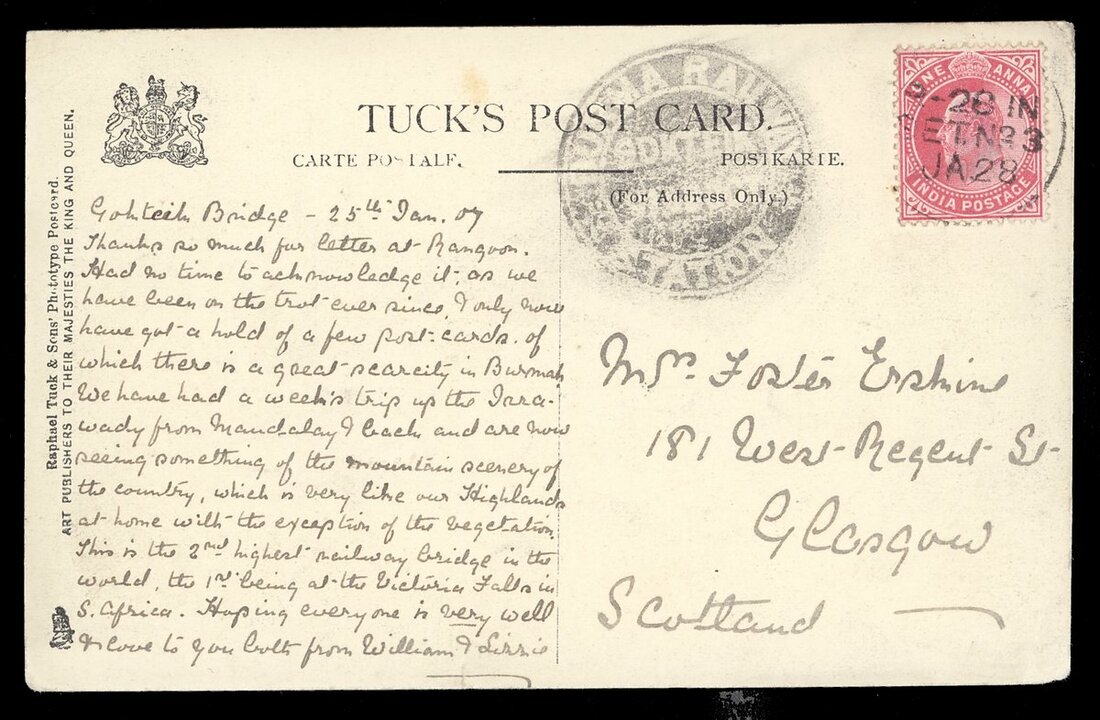 TUCK'S POST CARD.
CARTE POSTALE. POSTKARTE.
(For Address Only.)
Raphael Tuck & Sons' Phototype Postcard.
ART PUBLISHERS TO THEIR MAJESTIES THE KING AND QUEEN.
BURMA RAILWAYS
GOKTEIK
STATION
ONE ANNA
INDIA POSTAGE
-26 IN
ET. No 3
JA 28
Gohteik Bridge - 25th Jan. 07
Thanks so much for letter at Rangoon.
Had no time to acknowledge it, as we
have been on the trot ever since, & only now
have got a hold of a few post-cards. of
which there is a great scarcity in Burmah
We have had a week's trip up the Irra-
wady from Mandalay & back and are now
seeing something of the mountain scenery of
the country, which is very like our Highlands
at home with the exception of the vegetation
This is the 2nd highest railway bridge in the
world, the 1st being at the Victoria Falls in
S. Africa. Hoping everyone is very well
& love to you both from William & Lizzie
Mrs. Foster Erskine
181 West Regent St.
Glasgow
Scotland